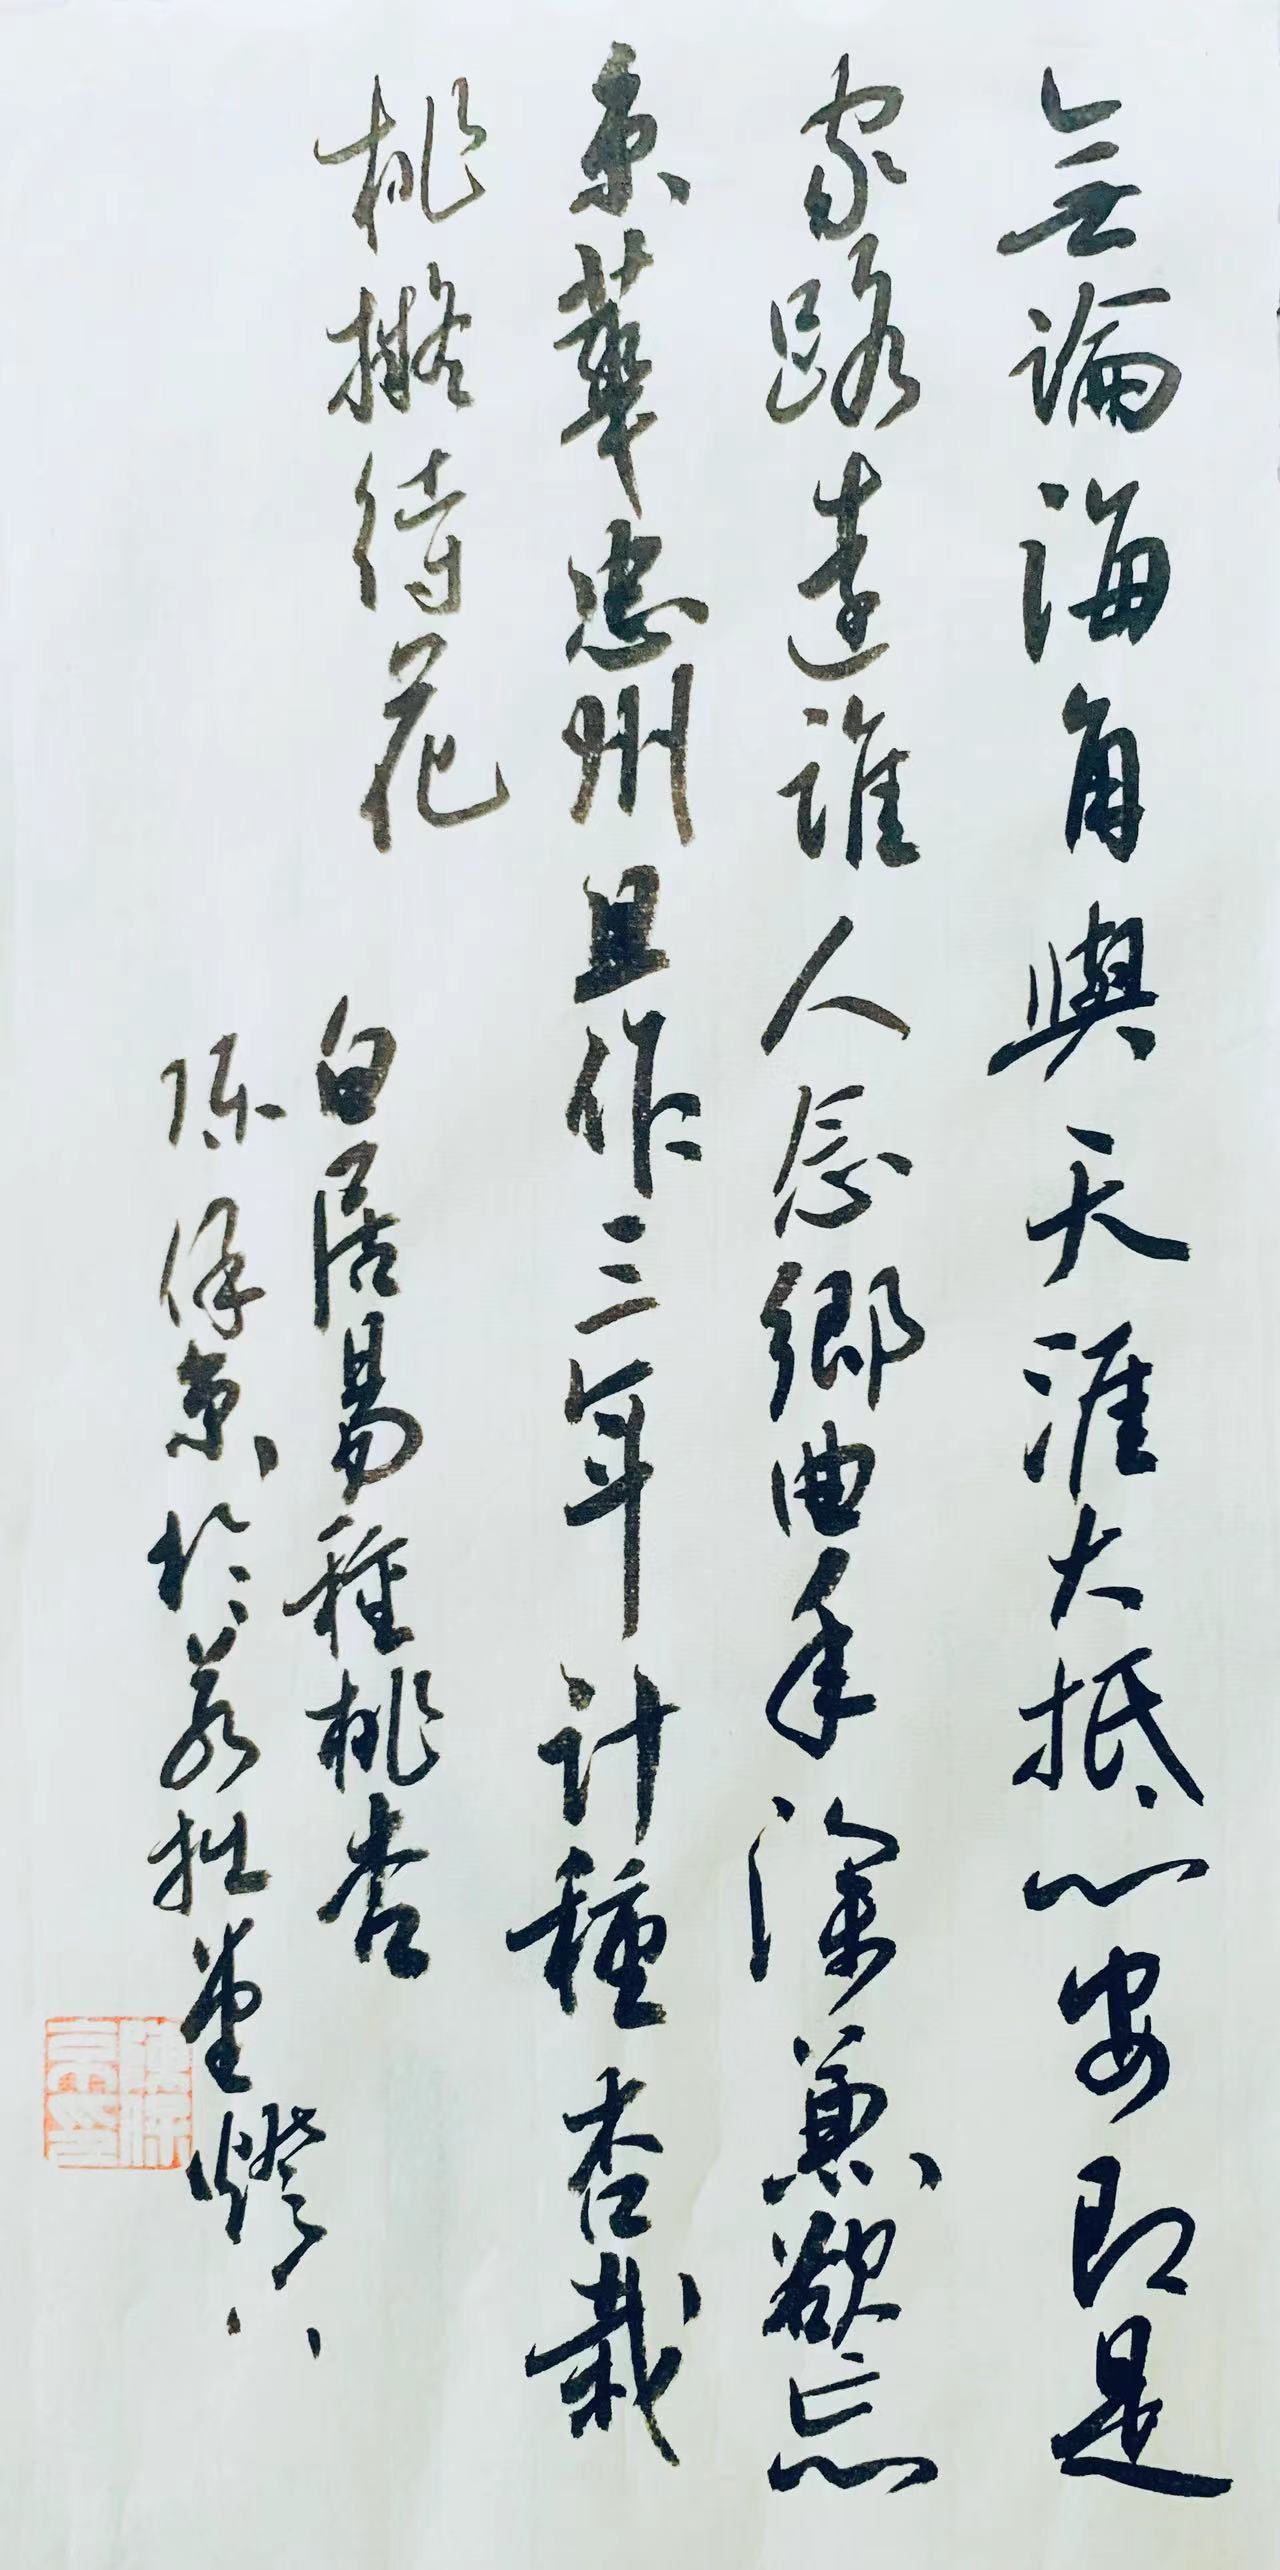 無論海角與天涯大抵心安即是
家路遠誰人念鄉曲年深兼欲忘
京華忠州且作三年計種杏栽
桃擬待花
白居易種桃杏
陈保京於若拙堂燈下
陳保京印